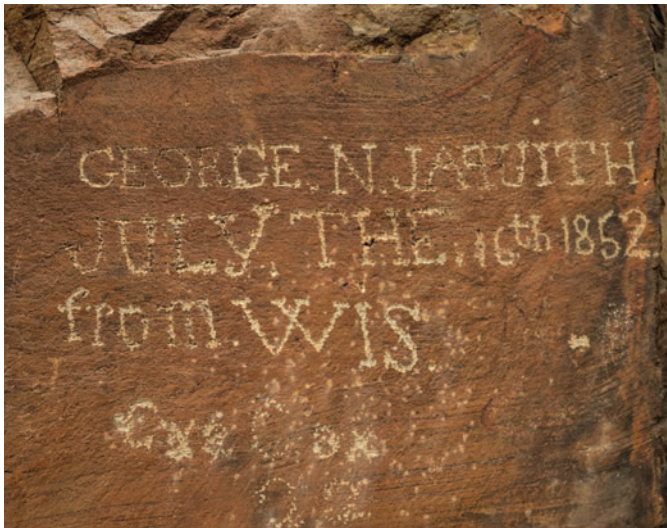 GEORGE. N. JAQUITH
JULY, THE. 16th 1852.
from. WIS.
Cox